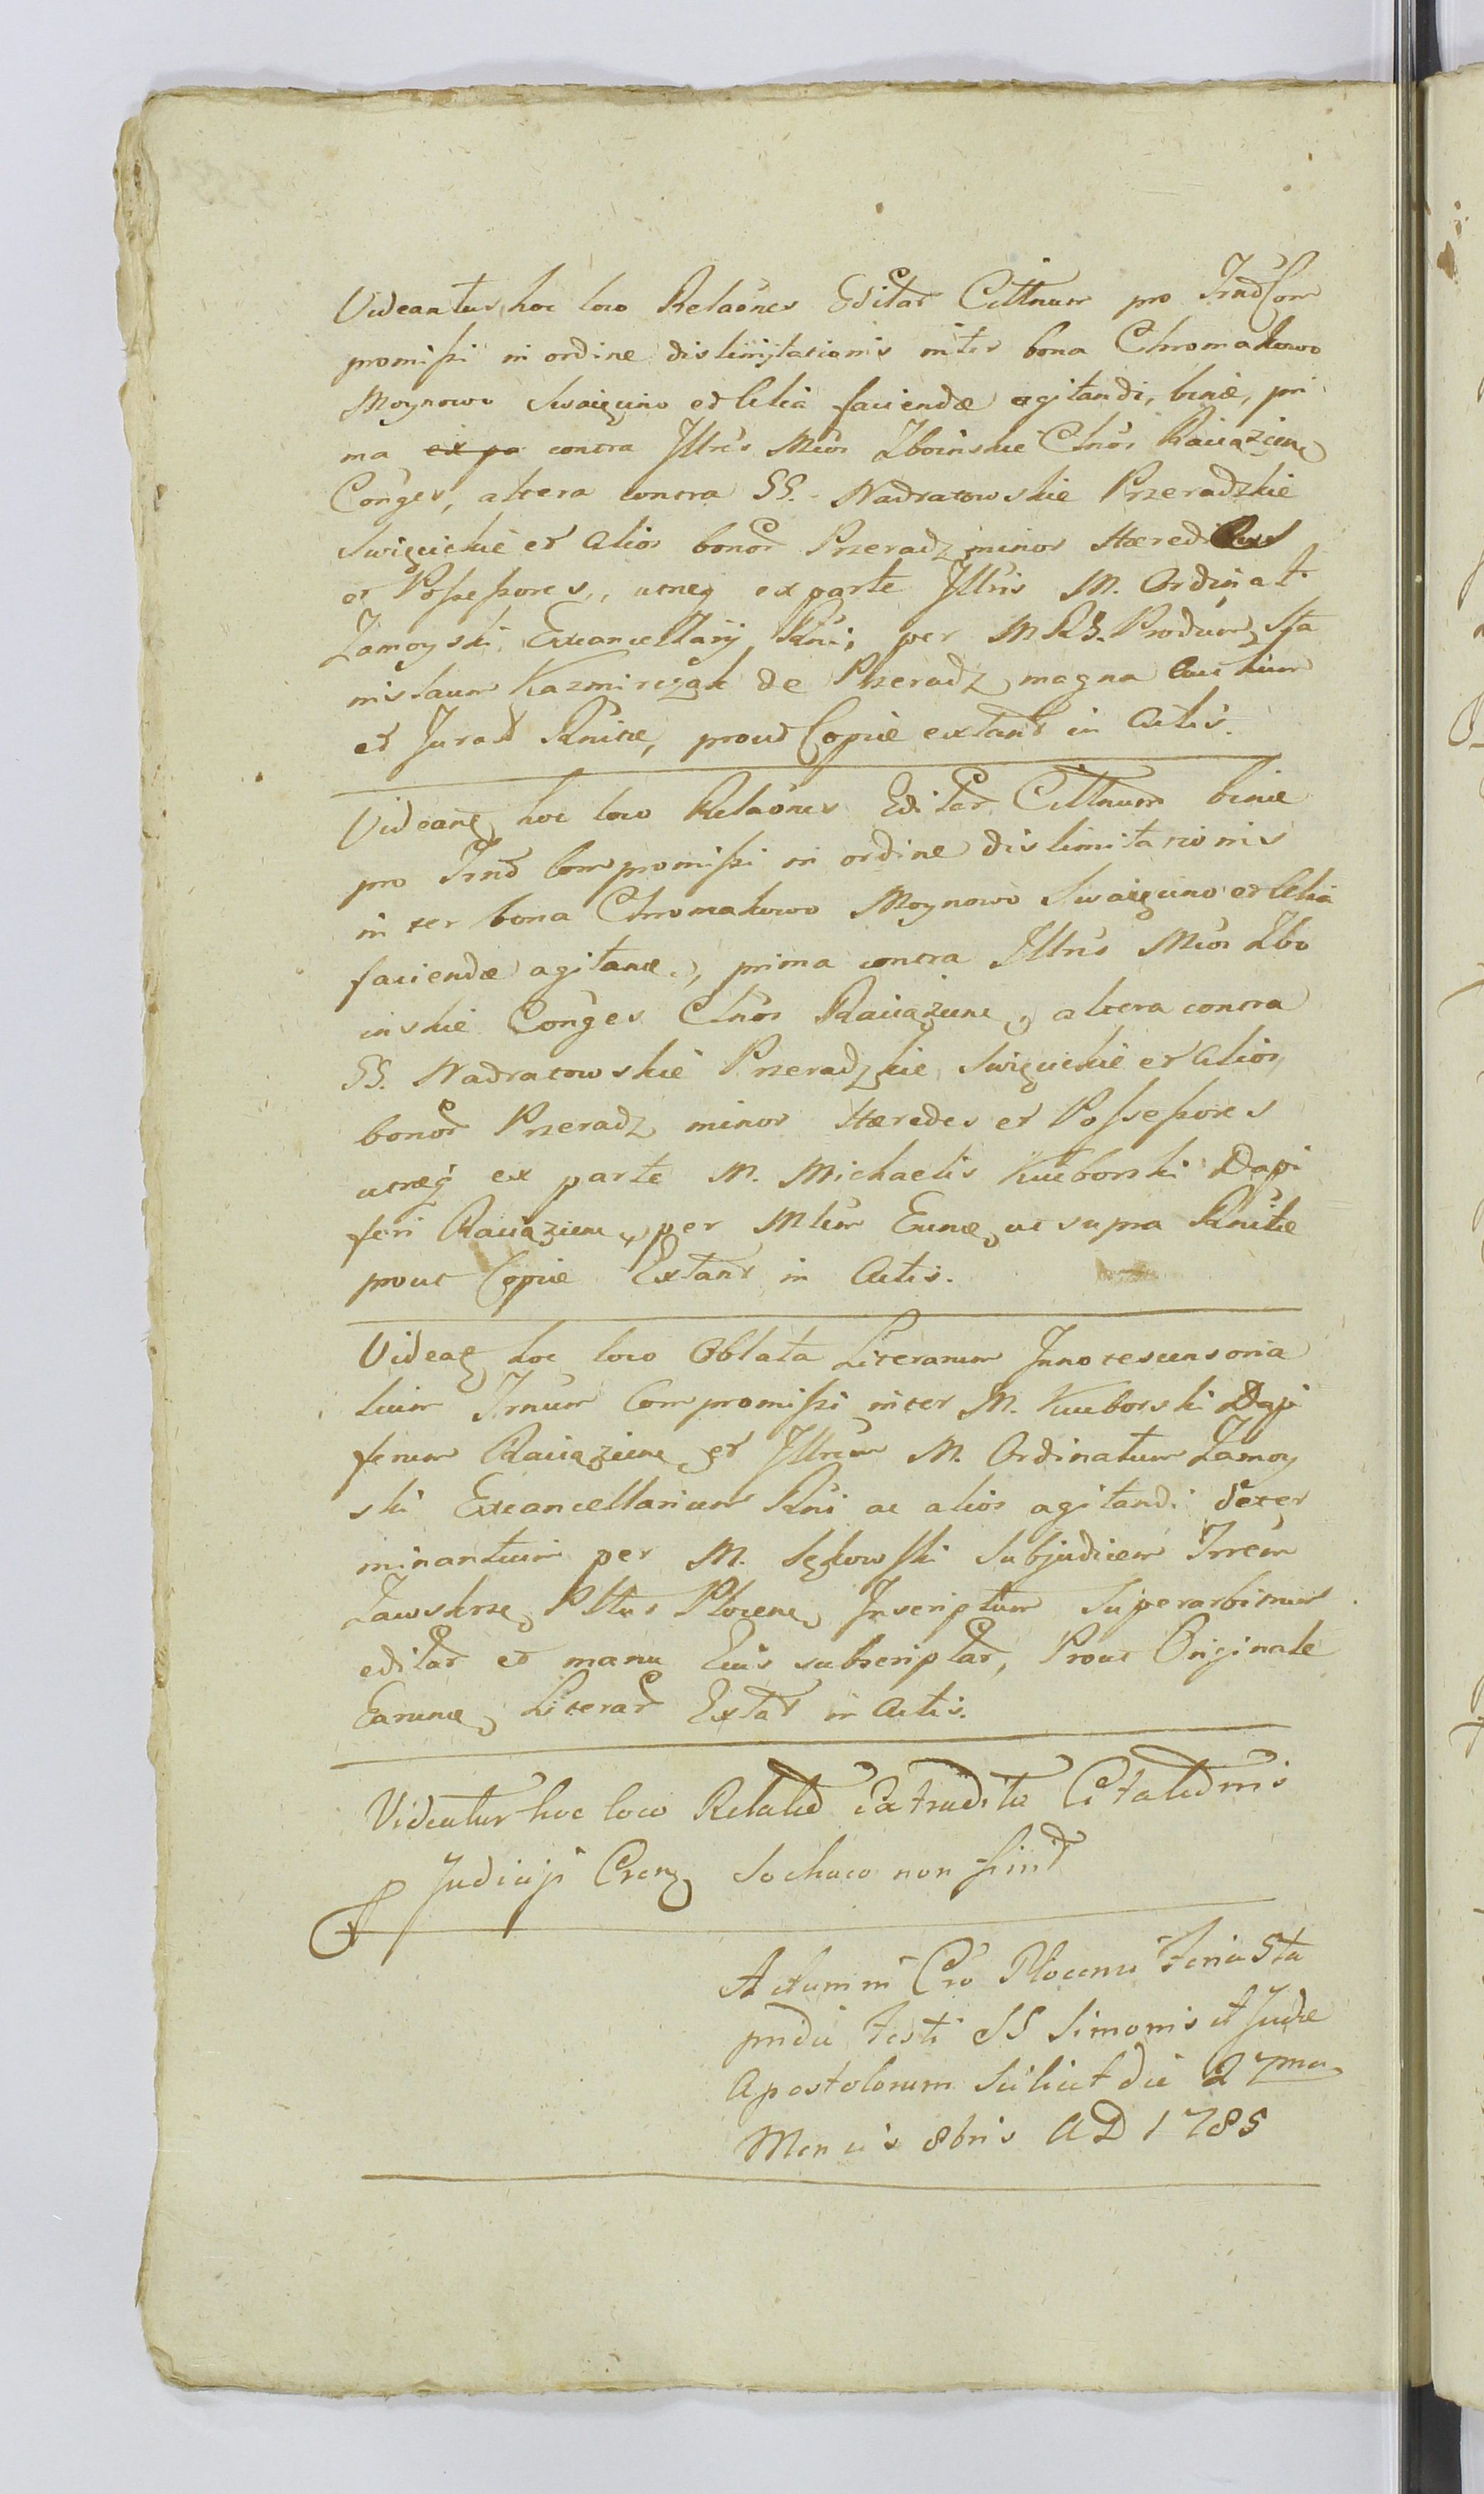 Videantur hoc loco Relaones Editar Cittnum pro Trnd Com
promissi in ordine dislimitacionis inter bona Chromakowo
Moynowo Swaięcino et Alia faciendæ agitandi, binæ, pri
ma ex pa contra Illrēs Mcos Zboinskie Chos Raciązien
Conges, altera contra GG. Nadratowskie Przeradzkie
Swięcickie et Alios bonor Przeradz minor Hæredes
et Possessores, utraq ex parte Illris M. Ordinat
Zamoyski Excancellarij Rni, per MRG. Produm Sta
nislaum Kazmirczak de Przeradz magna
et Jurat Rnitæ, prout Copiæ extant in Actis.
Videant hoc loco Relaones Editar Cittnum binæ
pro Trnd Compromissi in ordine dislimitacionis
inter bona Chromakowo Moynowo Swaięcino et Alia
faciendæ agitan, prima contra Illres Mcos Zbo
inskie Conges Chos Raciązien, altera contra
GG. Nadratowskie Przeradzkie Swięcickie et Alios
bonor Przeradz minor Hæredes et Possessores
utraq ex parte M. Michaelis Kuiborski Dapi
feri Raciązien, per Mlem Eund, ut supra Rnitæ
prout Copiæ Extant in Actis.
Videat hoc loco Oblata Literarum Innotescensoria
lium Trnum Compromissi inter M. Kuiborski Dapi
ferum Raciązien et Illrem M. Ordinatum Zamoy
ski Excancellarium Rni ac alios agitandi deter
minantium per M. Sękowski Subjudicem Trrem
Zawskrzen Pttus Plocen, Inscriptum Superarbitrum
editar et manu Eius subscriptar, Prout Originale
Earund, Literar Extat in Actis.
Videatur hoc loco Relatio Extradita Citationis
Judicij Cren Sochaco non
Actum in Cro Plocensi Feria 5ta
pridie Festi SS Simonis et Judæ
Apostolorum Scilicet die 27ma
Mensis 8bris AD 1785